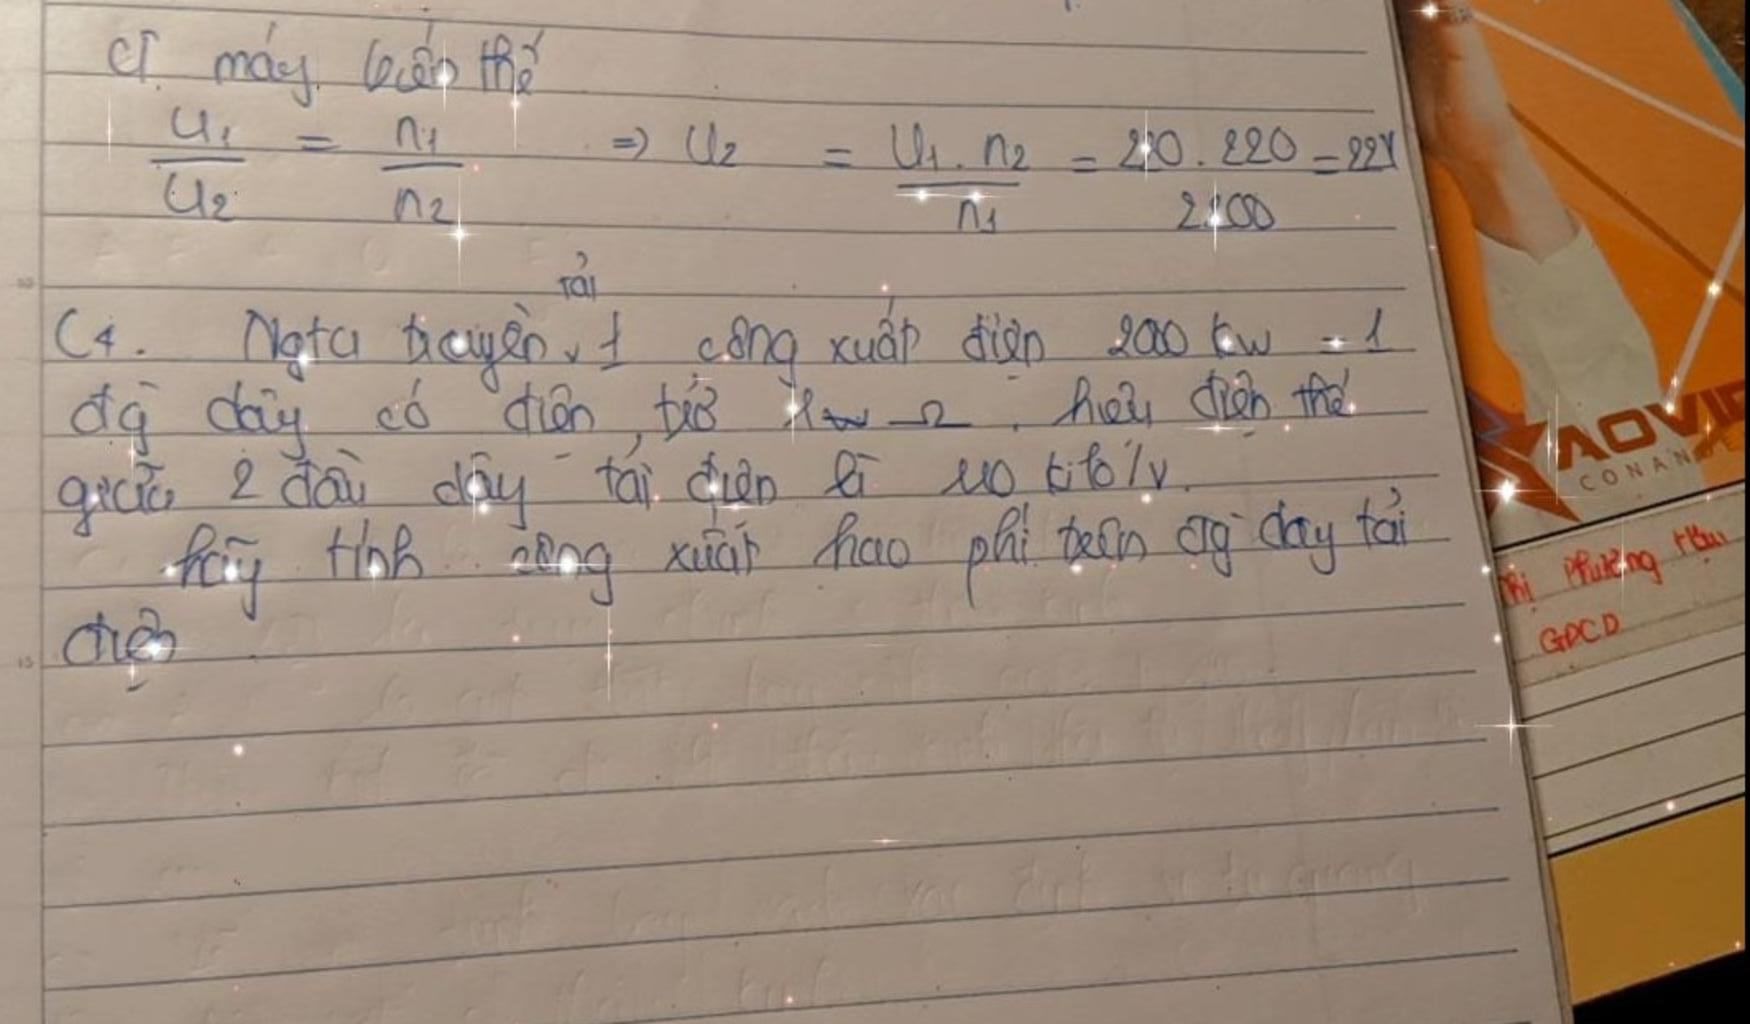 CT máy biến thế
U₁/U₂ = n₁/n₂ => U₂ = U₁.n₂/n₁ = 220.220/2200 = 22V
tải
C4. Ngta truyền v 1 công xuất điện 2000 kw = 1
đg dây có điện trở Ω. hiệu điện thế
giữa 2 đầu dây tải điện là 110 kilo/v.
hãy tính công xuất hao phí trên đg dây tải
điện
10
15
AOVIE
CONAN
Phương
GDCD